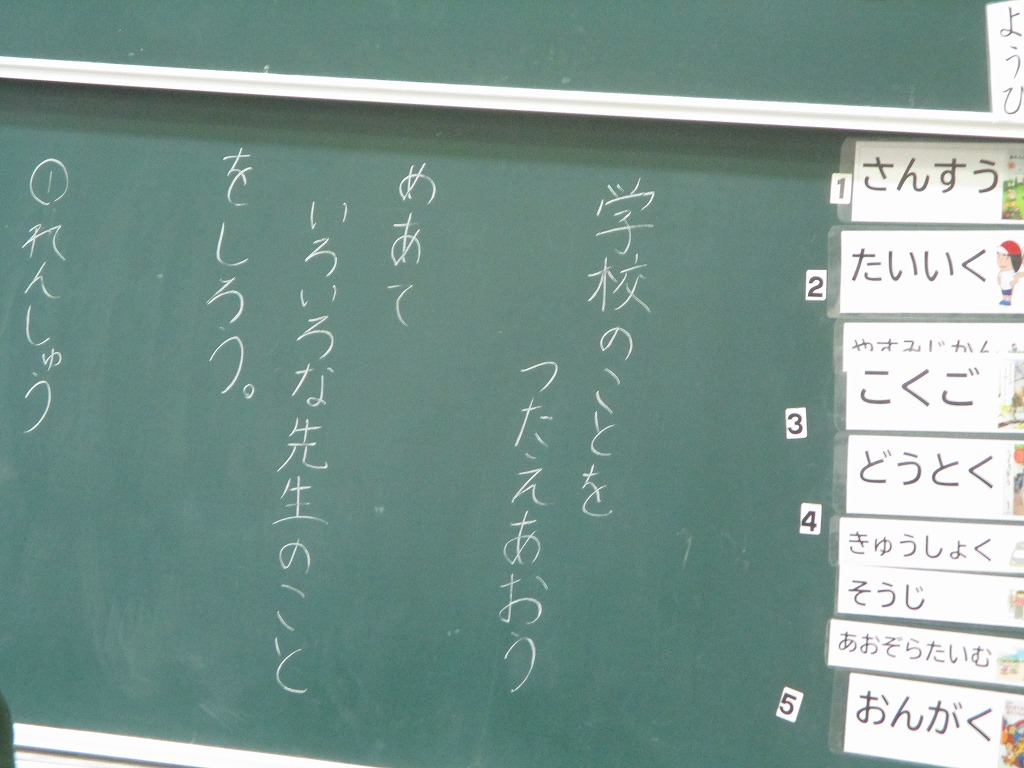 ようび
1
さんすう
2
たいいく
やすみじかん
3
こくご
4
どうとく
きゅうしょく
そうじ
あおぞらたいむ
5
おんがく
学校のことを
つたえあおう
めあて
いろいろな先生のこと
をしろう。
①れんしゅう